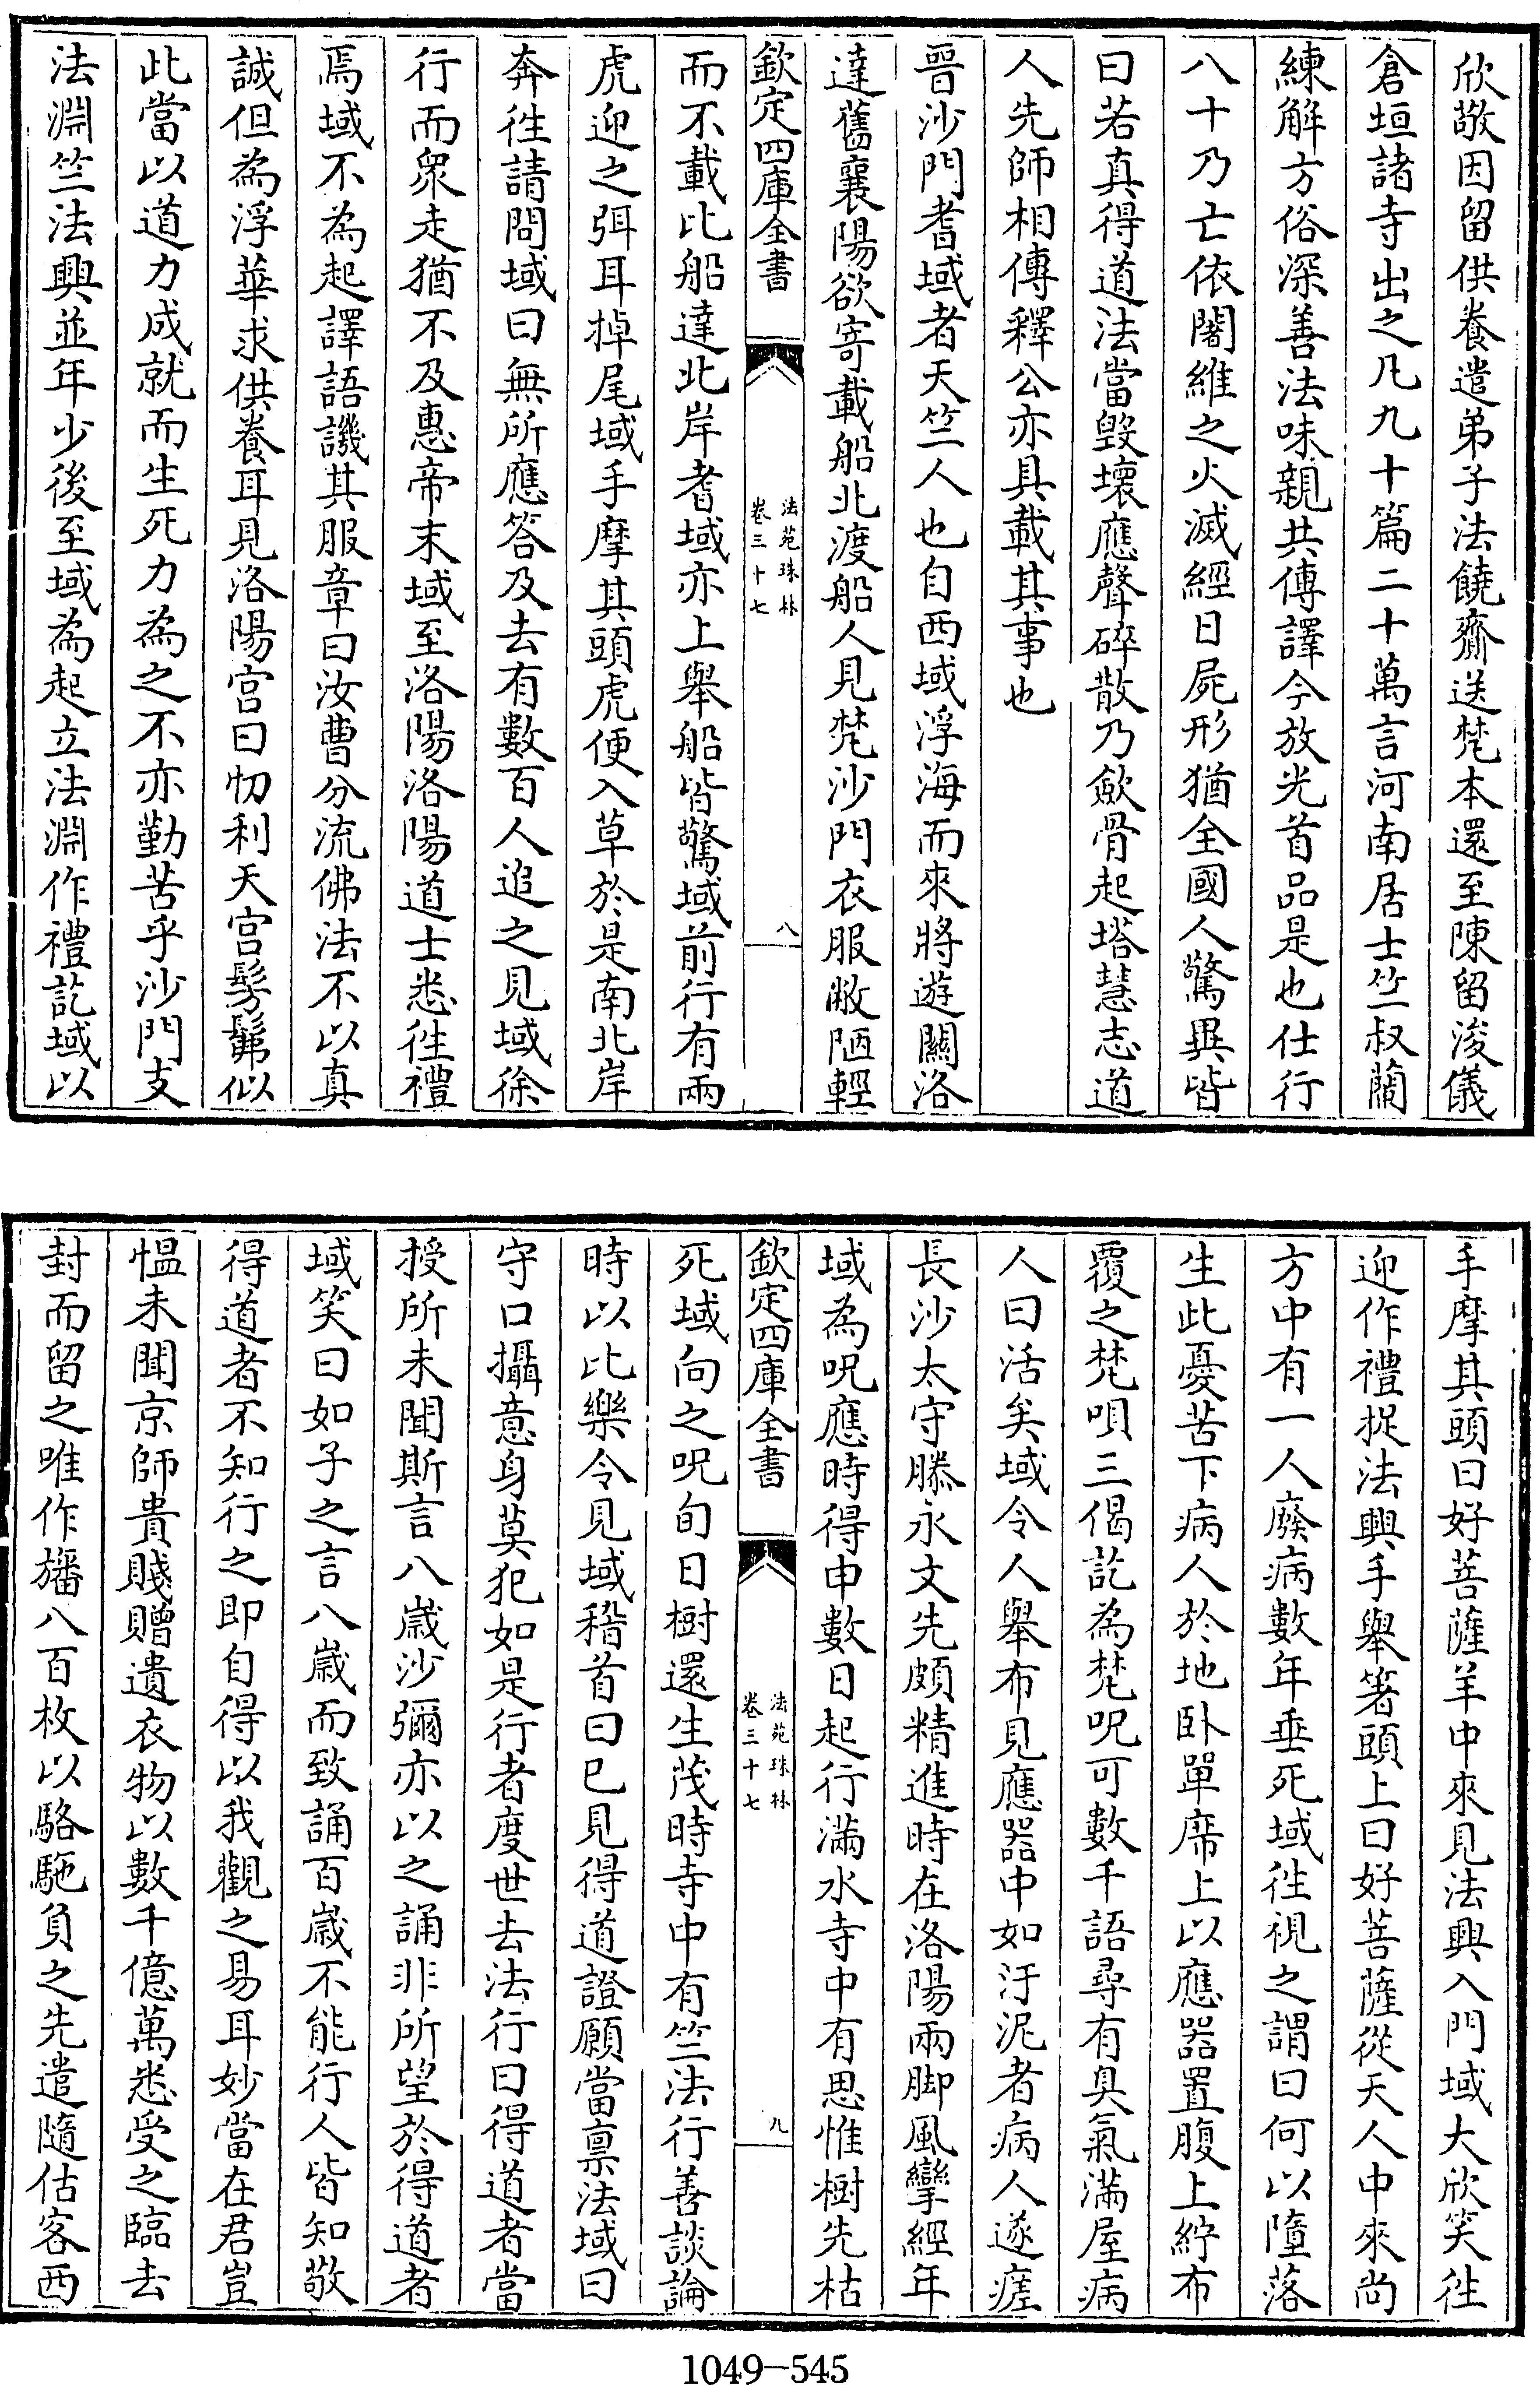 欣敬因留供養遣弟子法饒齎送梵本還至陳留浚儀
倉垣諸寺出之凡九十篇二十萬言河南居士竺叔蘭
練解方俗深善法味親共傳譯今放光首品是也仕行
八十乃亡依闍維之火滅經日屍形猶全國人驚異皆
曰若真得道法當毀壞應聲碎散乃歛骨起塔慧志道
人先師相傳釋公亦具載其事也
晉沙門耆域者天竺人也自西域浮海而來將遊關洛
達舊襄陽欲寄載船北渡船人見梵沙門衣服敝陋輕
欽定四庫全書
法苑珠林
卷三十七
八
而不載比船達北岸耆域亦上舉船皆驚域前行有兩
虎迎之弭耳掉尾域手摩其頭虎便入草於是南北岸
奔徃請問域曰無所應答及去有數百人追之見域徐
行而衆走猶不及惠帝末域至洛陽洛陽道士悉徃禮
焉域不為起譯語譏其服章曰汝曹分流佛法不以真
誠但為浮華求供養耳見洛陽宫曰忉利天宫髣髴似
此當以道力成就而生死力為之不亦勤苦乎沙門支
法淵竺法興並年少後至域為起立法淵作禮訖域以
手摩其頭曰好菩薩羊中來見法興入門域大欣笑徃
迎作禮捉法興手舉箸頭上曰好菩薩從天人中來尚
方中有一人廢病數年垂死域徃視之謂曰何以墮落
生此憂苦下病人於地卧單席上以應器置腹上紵布
覆之梵唄三偈訖為梵呪可數千語尋有臭氣滿屋病
人曰活矣域令人舉布見應器中如汙泥者病人遂瘥
長沙太守滕永文先頗精進時在洛陽兩脚風攣經年
域為呪應時得申數日起行滿水寺中有思惟樹先枯
欽定四庫全書
法苑珠林
卷三十七
九
死域向之呪旬日樹還生茂時寺中有竺法行善談論
時以比樂令見域稽首曰已見得道證願當禀法域曰
守口攝意身莫犯如是行者度世去法行曰得道者當
授所未聞斯言八歲沙彌亦以之誦非所望於得道者
域笑曰如子之言八歲而致誦百歲不能行人皆知敬
得道者不知行之即自得以我觀之易耳妙當在君豈
愠未聞京師貴賤贈遺衣物以數千億萬悉受之臨去
封而留之唯作旛八百枚以駱駞負之先遣隨估客西
1049-545